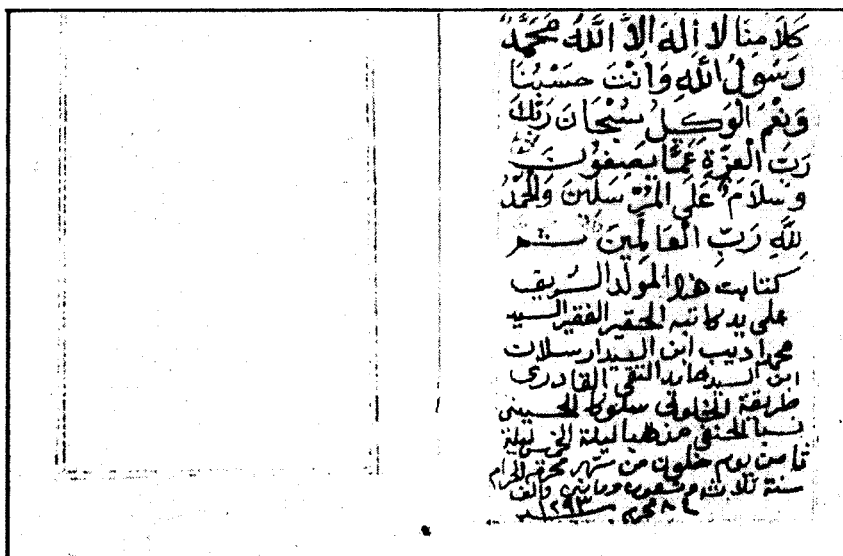 كَلَامِنَا لَا إِلَهَ اِلَّا اللَّهُ مُحَمَّدٌ
رَسُولُ اللَّهِ وَاَنْتَ حَسْبُنَا
وَنِعْمَ الْوَكِيلُ سُبْحَانَ رَبِّكَ
رَبِّ الْعِزَّةِ عَمَّا يَصِفُونَ
وَسَلَامٌ عَلَى الْمُرْسَلِينَ وَالْحَمْدُ
لِلَّهِ رَبِّ الْعَالَمِينَ
كتابت هذا المولد الشريف
على يد كاتبه الحقير الفقير السيد
محمد اديب ابن السيد ارسلان
ابن السيد حامد التقي القادري
طريقة الخلوتي سلوكا الحسيني
نسبا الحنفي مذهبا ليلة الخميس ليلة
ثامن يوم خلون من شهر محرم الحرام
سنة ثلاث وتسعون ومايتين والف
٨ محرم سنة ١٢٩٣